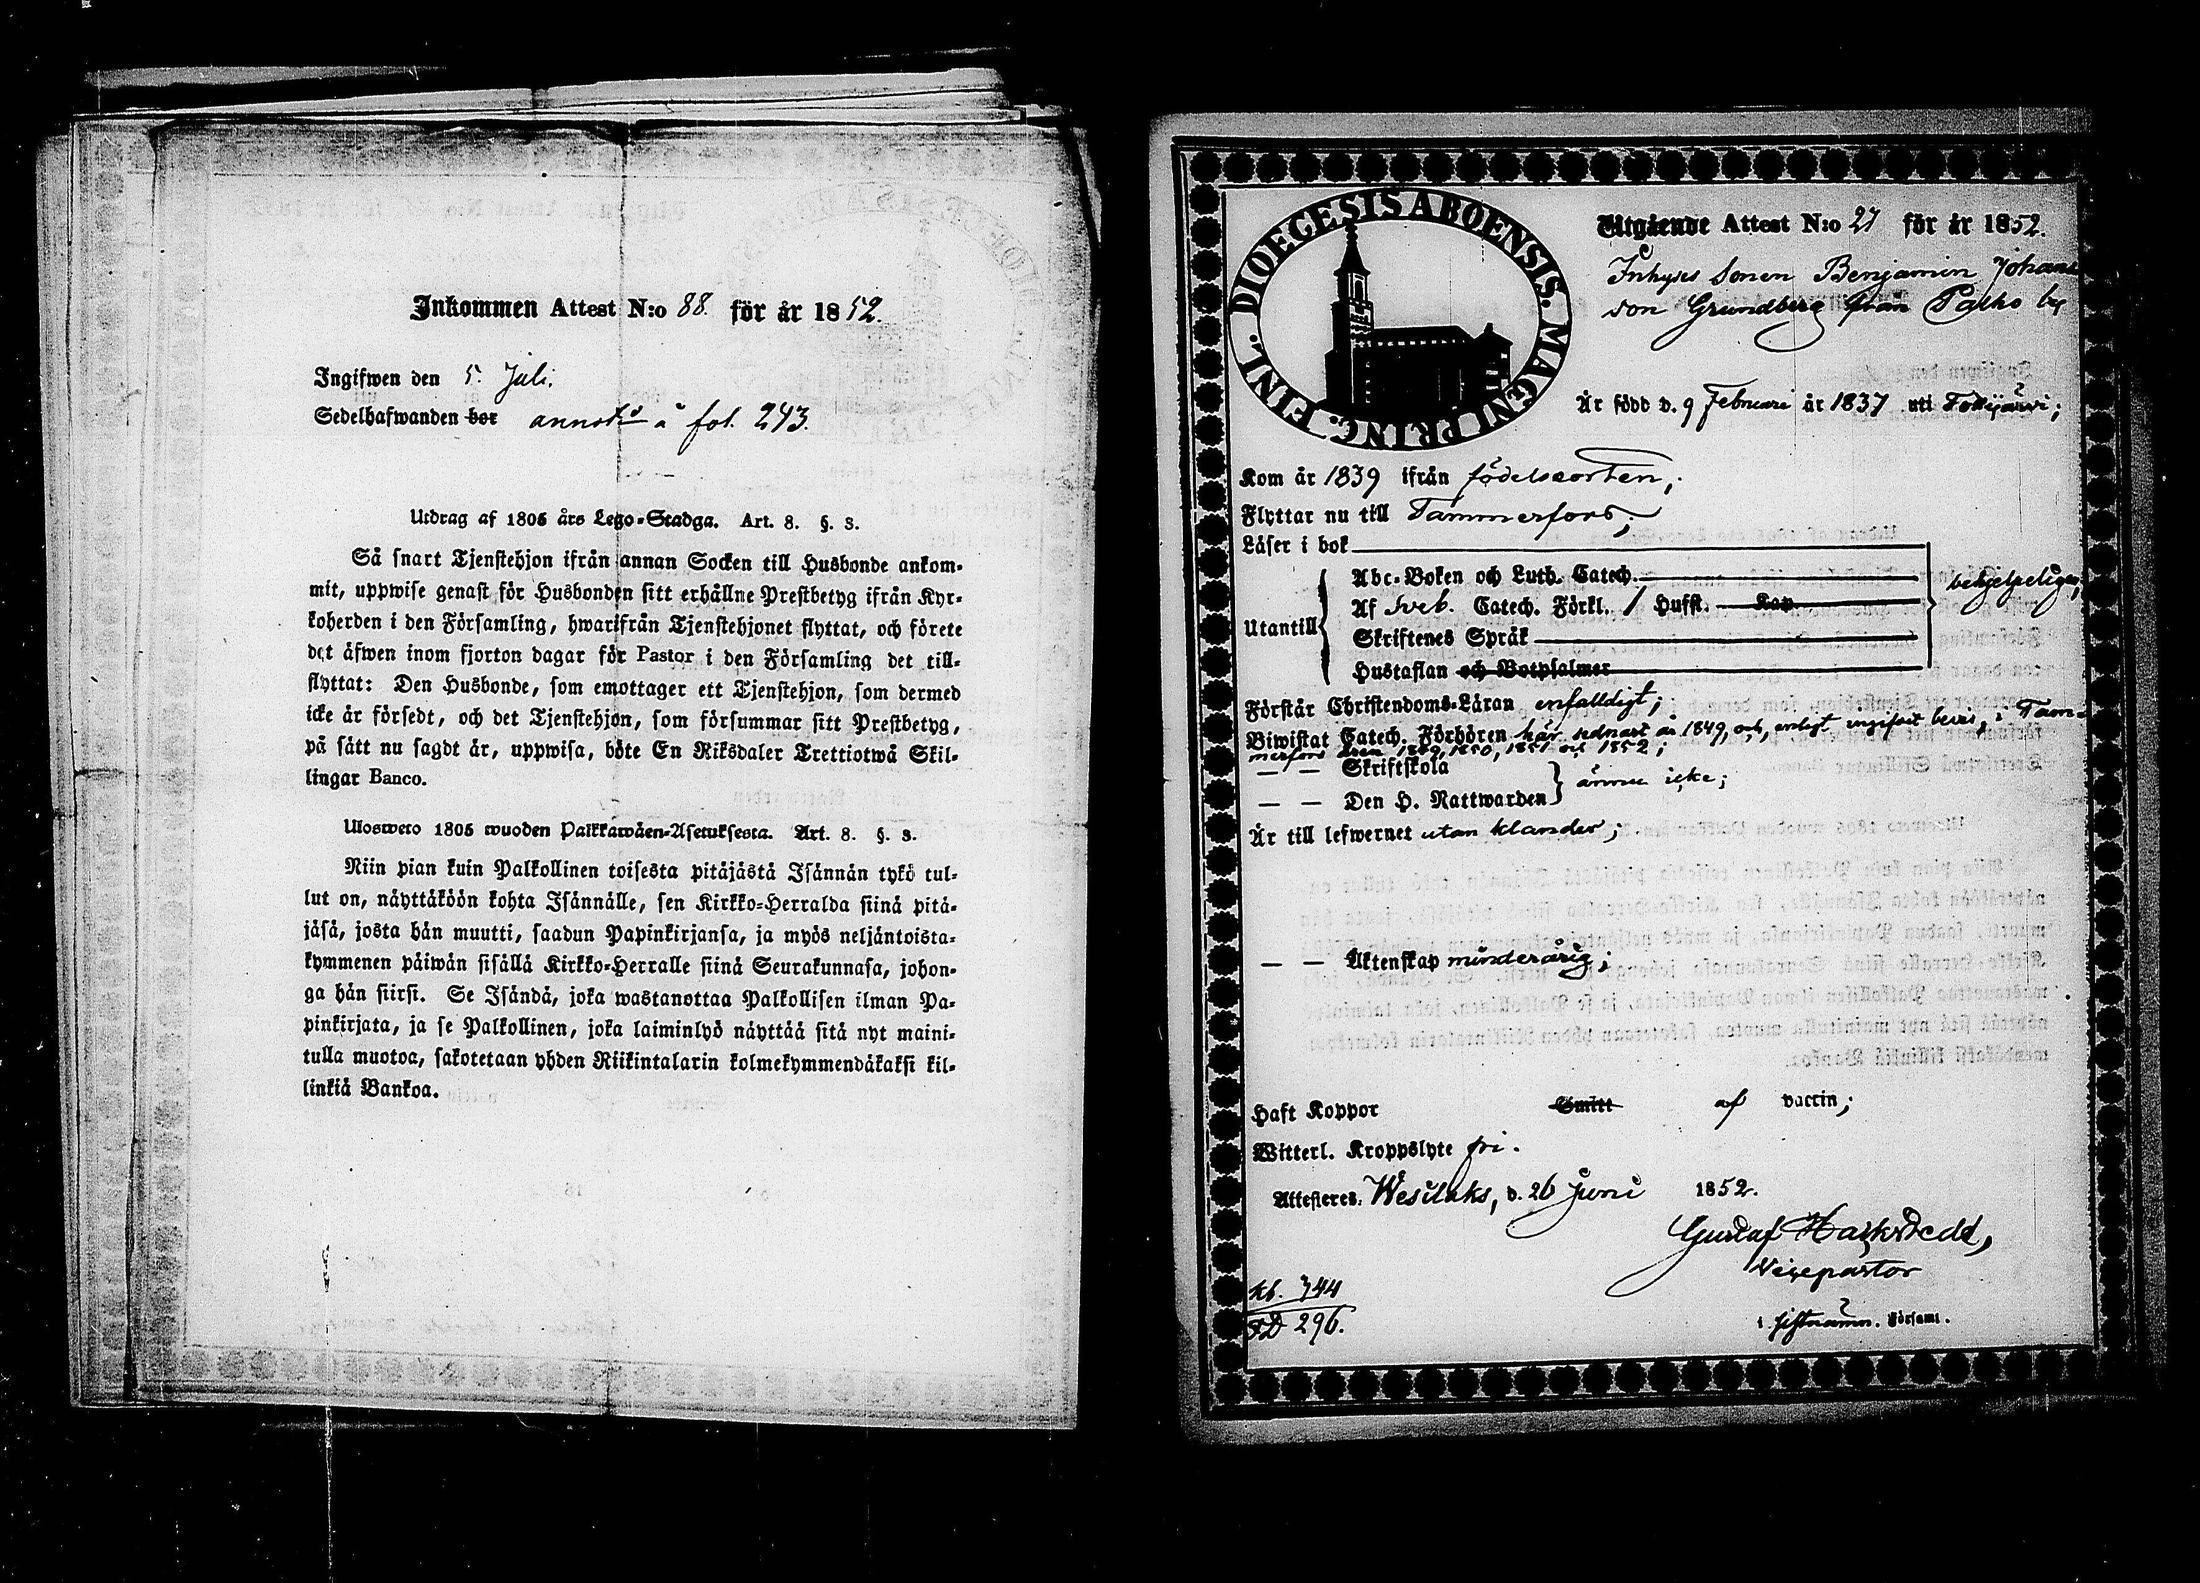 Inkommen Attest N:o 88. för år 1852.
Ingifwen den 5. Juli.
Sedelhafwanden bor annots å fol. 243.
Utdrag af 1805 års Lego-Stadga. Art. 8. §. 3.
Så snart Tjenstehjon ifrån annan Socken till Husbonde ankom-
mit, uppwise genast för Husbonden sitt erhållne Prestbetyg ifrån Kyr-
koherden i den Församling, hwarifrån Tjenstehjonet flyttat, och förete
det äfwen inom fjorton dagar för Pastor i den Församling det till-
flyttat: Den Husbonde, som emottager ett Tjenstehjon, som dermed
icke är försedt, och det Tjenstehjon, som försummar sitt Prestbetyg,
på sätt nu sagdt är, uppwisa, böte En Riksdaler Trettiotwå Skil-
lingar Banco.
Ulosweto 1805 wuoden Palkkawäen-Asetuksesta. Art. 8. §. 3.
Niin pian kuin Palkollinen toisesta pitäjästä Isännän tykö tul-
lut on, näyttäköön kohta Isännälle, sen Kirkko-Herralda siinä pitä-
jäsä, josta hän muutti, saadun Papinkirjansa, ja myös neljäntoista-
kymmenen päiwän sisällä Kirkko-Herralle siinä Seurakunnasa, johon-
ga hän siirsi. Se Isändä, joka wastanottaa Palkollisen ilman Pa-
pinkirjata, ja se Palkollinen, joka laiminlyö näyttää sitä nyt maini-
tulla muotoa, sakotetaan yhden Riikintalarin kolmekymmendäkaksi kil-
linkiä Bankoa.
DIOECESIS ABOENSIS. MAGNI PRINC. FINL.
Utgående Attest N:o 27 för år 1852.
Inhyses Sonen Benjamin Johans
son Grundberg från Palho by
Är född d. 9 Februari år 1837 uti Tottijärvi;
Kom år 1839 ifrån födelseorten;
Flyttar nu till Tammerfors;
Läser i bok
Utantill
Abc-Boken och Luth. Catech.
Af Sveb. Catech. Förkl. / Hufst. Kap.
Skriftenes Språk
Hustaflan och Botpsalmer
behjelpeligen;
Förstår Christendoms-Läran enfalldigt;
Biwistat Catech. Förhören här sednast år 1849, och, enligt ingifvit bevis, i Tam-
merfors åren 1849, 1850, 1851 och 1852;
— — Skriftskola
— — Den H. Nattwarden
ännu icke;
Är till lefwernet utan klander;
— — Äktenskap minderårig;
Haft Koppor Smitt af vaccin;
Witterl. Kroppslyte fri.
Attesteres. Wesilaks, d. 26 Juni 1852.
Gustaf
Vicepastor
i sistnämn. Församl.
kb. 344
296.